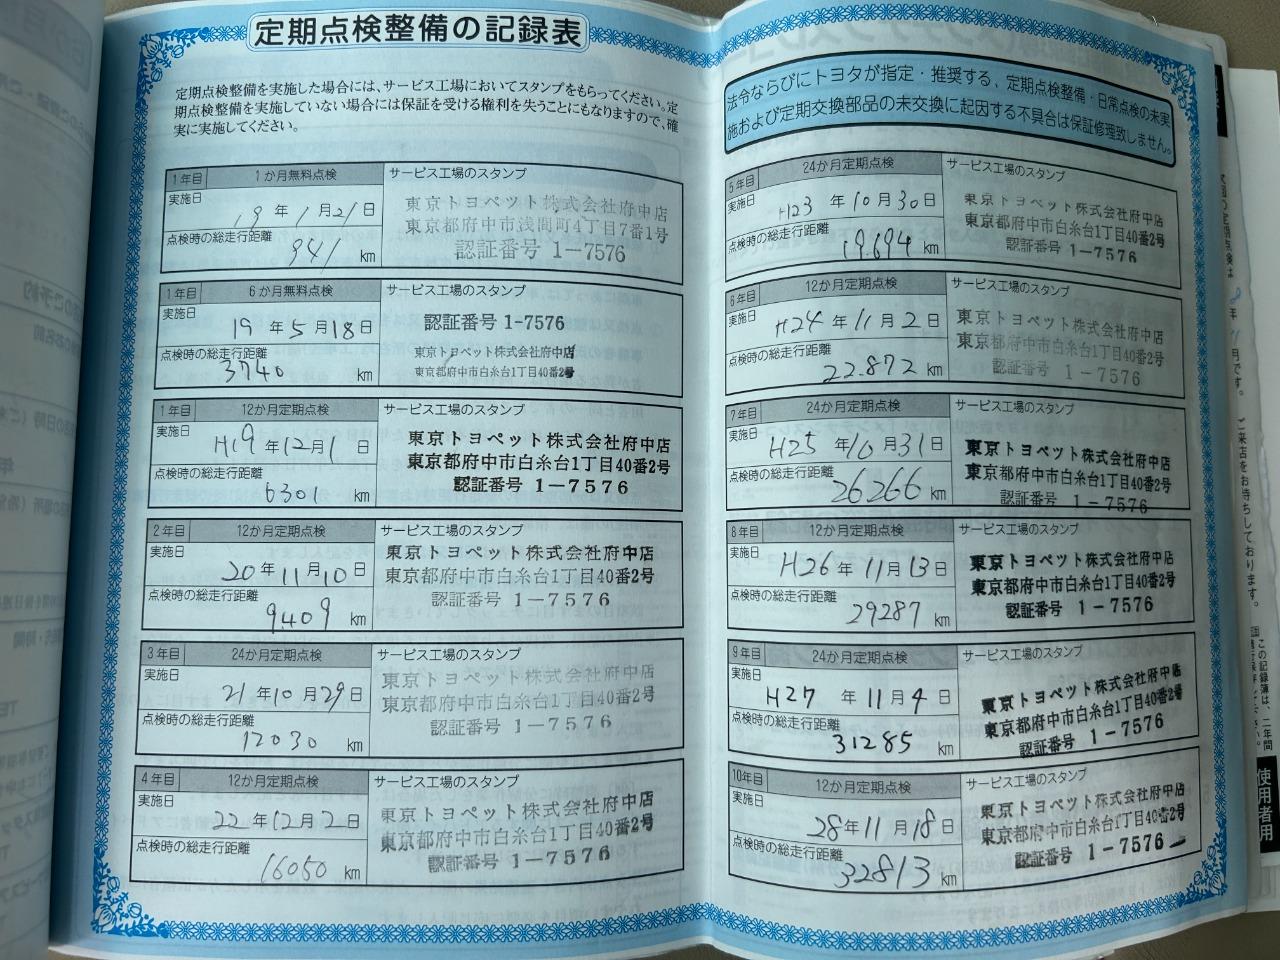 定期点検整備の記録表
定期点検整備を実施した場合には、サービス工場においてスタンプをもらってください。定
期点検整備を実施していない場合には保証を受ける権利を失うことにもなりますので、確
実に実施してください。
1年目 1か月無料点検 サービス工場のスタンプ
実施日 19年1月21日
点検時の総走行距離 941 km
東京トヨペット株式会社府中店
東京都府中市浅間町4丁目7番1号
認証番号 1-7576
1年目 6か月無料点検 サービス工場のスタンプ
実施日 19年5月18日
点検時の総走行距離 3740 km
認証番号 1-7576
東京トヨペット株式会社府中店
東京都府中市白糸台1丁目40番2号
1年目 12か月定期点検 サービス工場のスタンプ
実施日 H19年12月1日
点検時の総走行距離 6301 km
東京トヨペット株式会社府中店
東京都府中市白糸台1丁目40番2号
認証番号 1-7576
2年目 12か月定期点検 サービス工場のスタンプ
実施日 20年11月10日
点検時の総走行距離 9409 km
東京トヨペット株式会社府中店
東京都府中市白糸台1丁目40番2号
認証番号 1-7576
3年目 24か月定期点検 サービス工場のスタンプ
実施日 21年10月29日
点検時の総走行距離 12030 km
東京トヨペット株式会社府中店
東京都府中市白糸台1丁目40番2号
認証番号 1-7576
4年目 12か月定期点検 サービス工場のスタンプ
実施日 22年12月2日
点検時の総走行距離 16050 km
東京トヨペット株式会社府中店
東京都府中市白糸台1丁目40番2号
認証番号 1-7576
法令ならびにトヨタが指定・推奨する、定期点検整備・日常点検の未実
施および定期交換部品の未交換に起因する不具合は保証修理致しません。
5年目 24か月定期点検 サービス工場のスタンプ
実施日 H23年10月30日
点検時の総走行距離 19.694 km
東京トヨペット株式会社府中店
東京都府中市白糸台1丁目40番2号
認証番号 1-7576
6年目 12か月定期点検 サービス工場のスタンプ
実施日 H24年11月2日
点検時の総走行距離 22.872 km
東京トヨペット株式会社府中店
東京都府中市白糸台1丁目40番2号
認証番号 1-7576
7年目 24か月定期点検 サービス工場のスタンプ
実施日 H25年10月31日
点検時の総走行距離 26266 km
東京トヨペット株式会社府中店
東京都府中市白糸台1丁目40番2号
認証番号 1-7576
8年目 12か月定期点検 サービス工場のスタンプ
実施日 H26年11月13日
点検時の総走行距離 29287 km
東京トヨペット株式会社府中店
東京都府中市白糸台1丁目40番2号
認証番号 1-7576
9年目 24か月定期点検 サービス工場のスタンプ
実施日 H27年11月4日
点検時の総走行距離 31285 km
東京トヨペット株式会社府中店
東京都府中市白糸台1丁目40番2号
認証番号 1-7576
10年目 12か月定期点検 サービス工場のスタンプ
実施日 28年11月18日
点検時の総走行距離 32813 km
東京トヨペット株式会社府中店
東京都府中市白糸台1丁目40番2号
認証番号 1-7576
月です。 ご来店をお待ちしております。
この記録簿は、二年間
使用者用